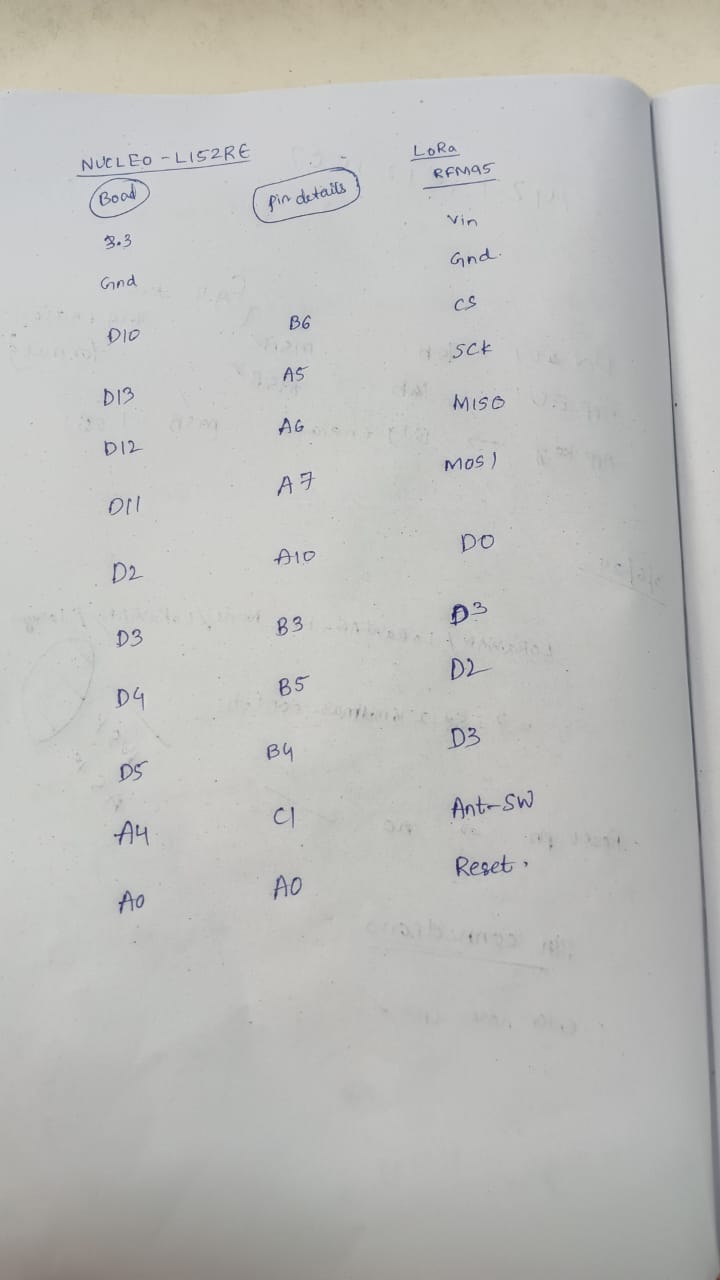 NUCLEO - L152RE LoRa
RFM95
Boad Pin details
3.3 Vin
Gnd Gnd.
D10 B6 CS
D13 A5 SCK
D12 A6 MISO
D11 A7 MOSI
D2 A10 D0
D3 B3 D3
D4 B5 D2
D5 B4 D3
A4 C1 Ant-SW
A0 A0 Reset.